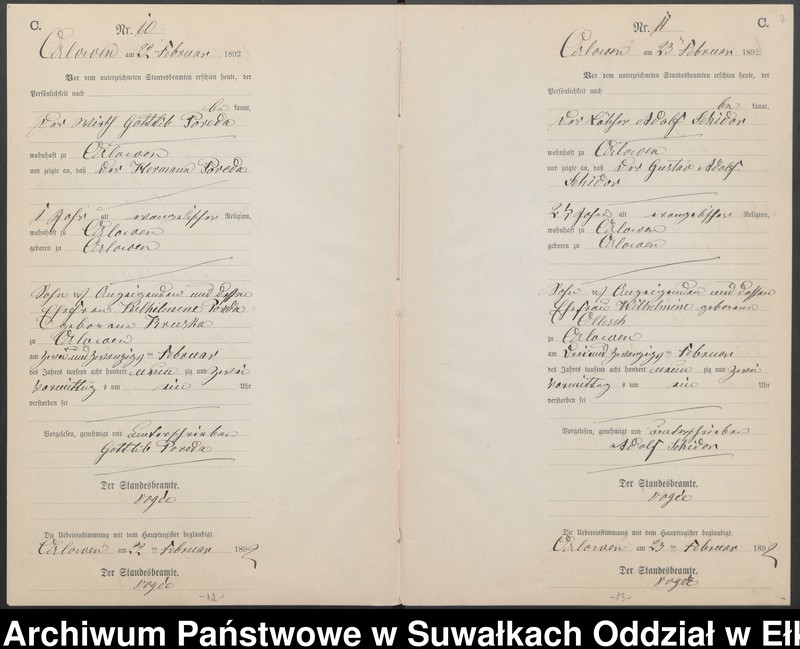 C.
Nr. 10
Orlowen am 22 ten Februar 1892.
Vor dem unterzeichneten Standesbeamten erschien heute, der
Persönlichkeit nach
be kannt,
Der Wirth Gottlieb Poreda
wohnhaft zu Orlowen
und zeigte an, daß Der Hermann Poreda
1 Jahr alt evangelischer Religion,
wohnhaft zu Orlowen
geboren zu Orlowen
Sohn des Anzeigenden und dessen
Ehefrau Wilhelmine Poreda
geborene
zu Orlowen
am zwei und zwanzigsten Februar
des Jahres tausend acht hundert neun zig und zwei
Vormittag s um ein Uhr
verstorben sei
Vorgelesen, genehmigt und unterschrieben
Gottlieb Poreda
Der Standesbeamte.
Die Uebereinstimmung mit dem Hauptregister beglaubigt.
Orlowen am 22 ten Februar 1892
Der Standesbeamte.
-12-
Nr. 11
C.
7
Orlowen am 23 ten Februar 1892
Vor dem unterzeichneten Standesbeamten erschien heute, der
Persönlichkeit nach
be kannt,
Der Käthner Adolf Schidor
wohnhaft zu Orlowen
und zeigte an, daß Der Gustav Adolf
Schidor
alt evangelischer Religion,
wohnhaft zu Orlowen
geboren zu Orlowen
Sohn des Anzeigenden und dessen
Ehefrau Wilhelmine geborene
Ollesch
zu Orlowen
am drei und zwanzigsten Februar
des Jahres tausend acht hundert neun zig und zwei
Vormittag s um ein Uhr
verstorben sei
Vorgelesen, genehmigt und unterschrieben
Adolf Schidor
Der Standesbeamte.
Die Uebereinstimmung mit dem Hauptregister beglaubigt.
Orlowen am 23 ten Februar 1892
Der Standesbeamte.
-13-
Archiwum Państwowe w Suwałkach Oddział w Ełk